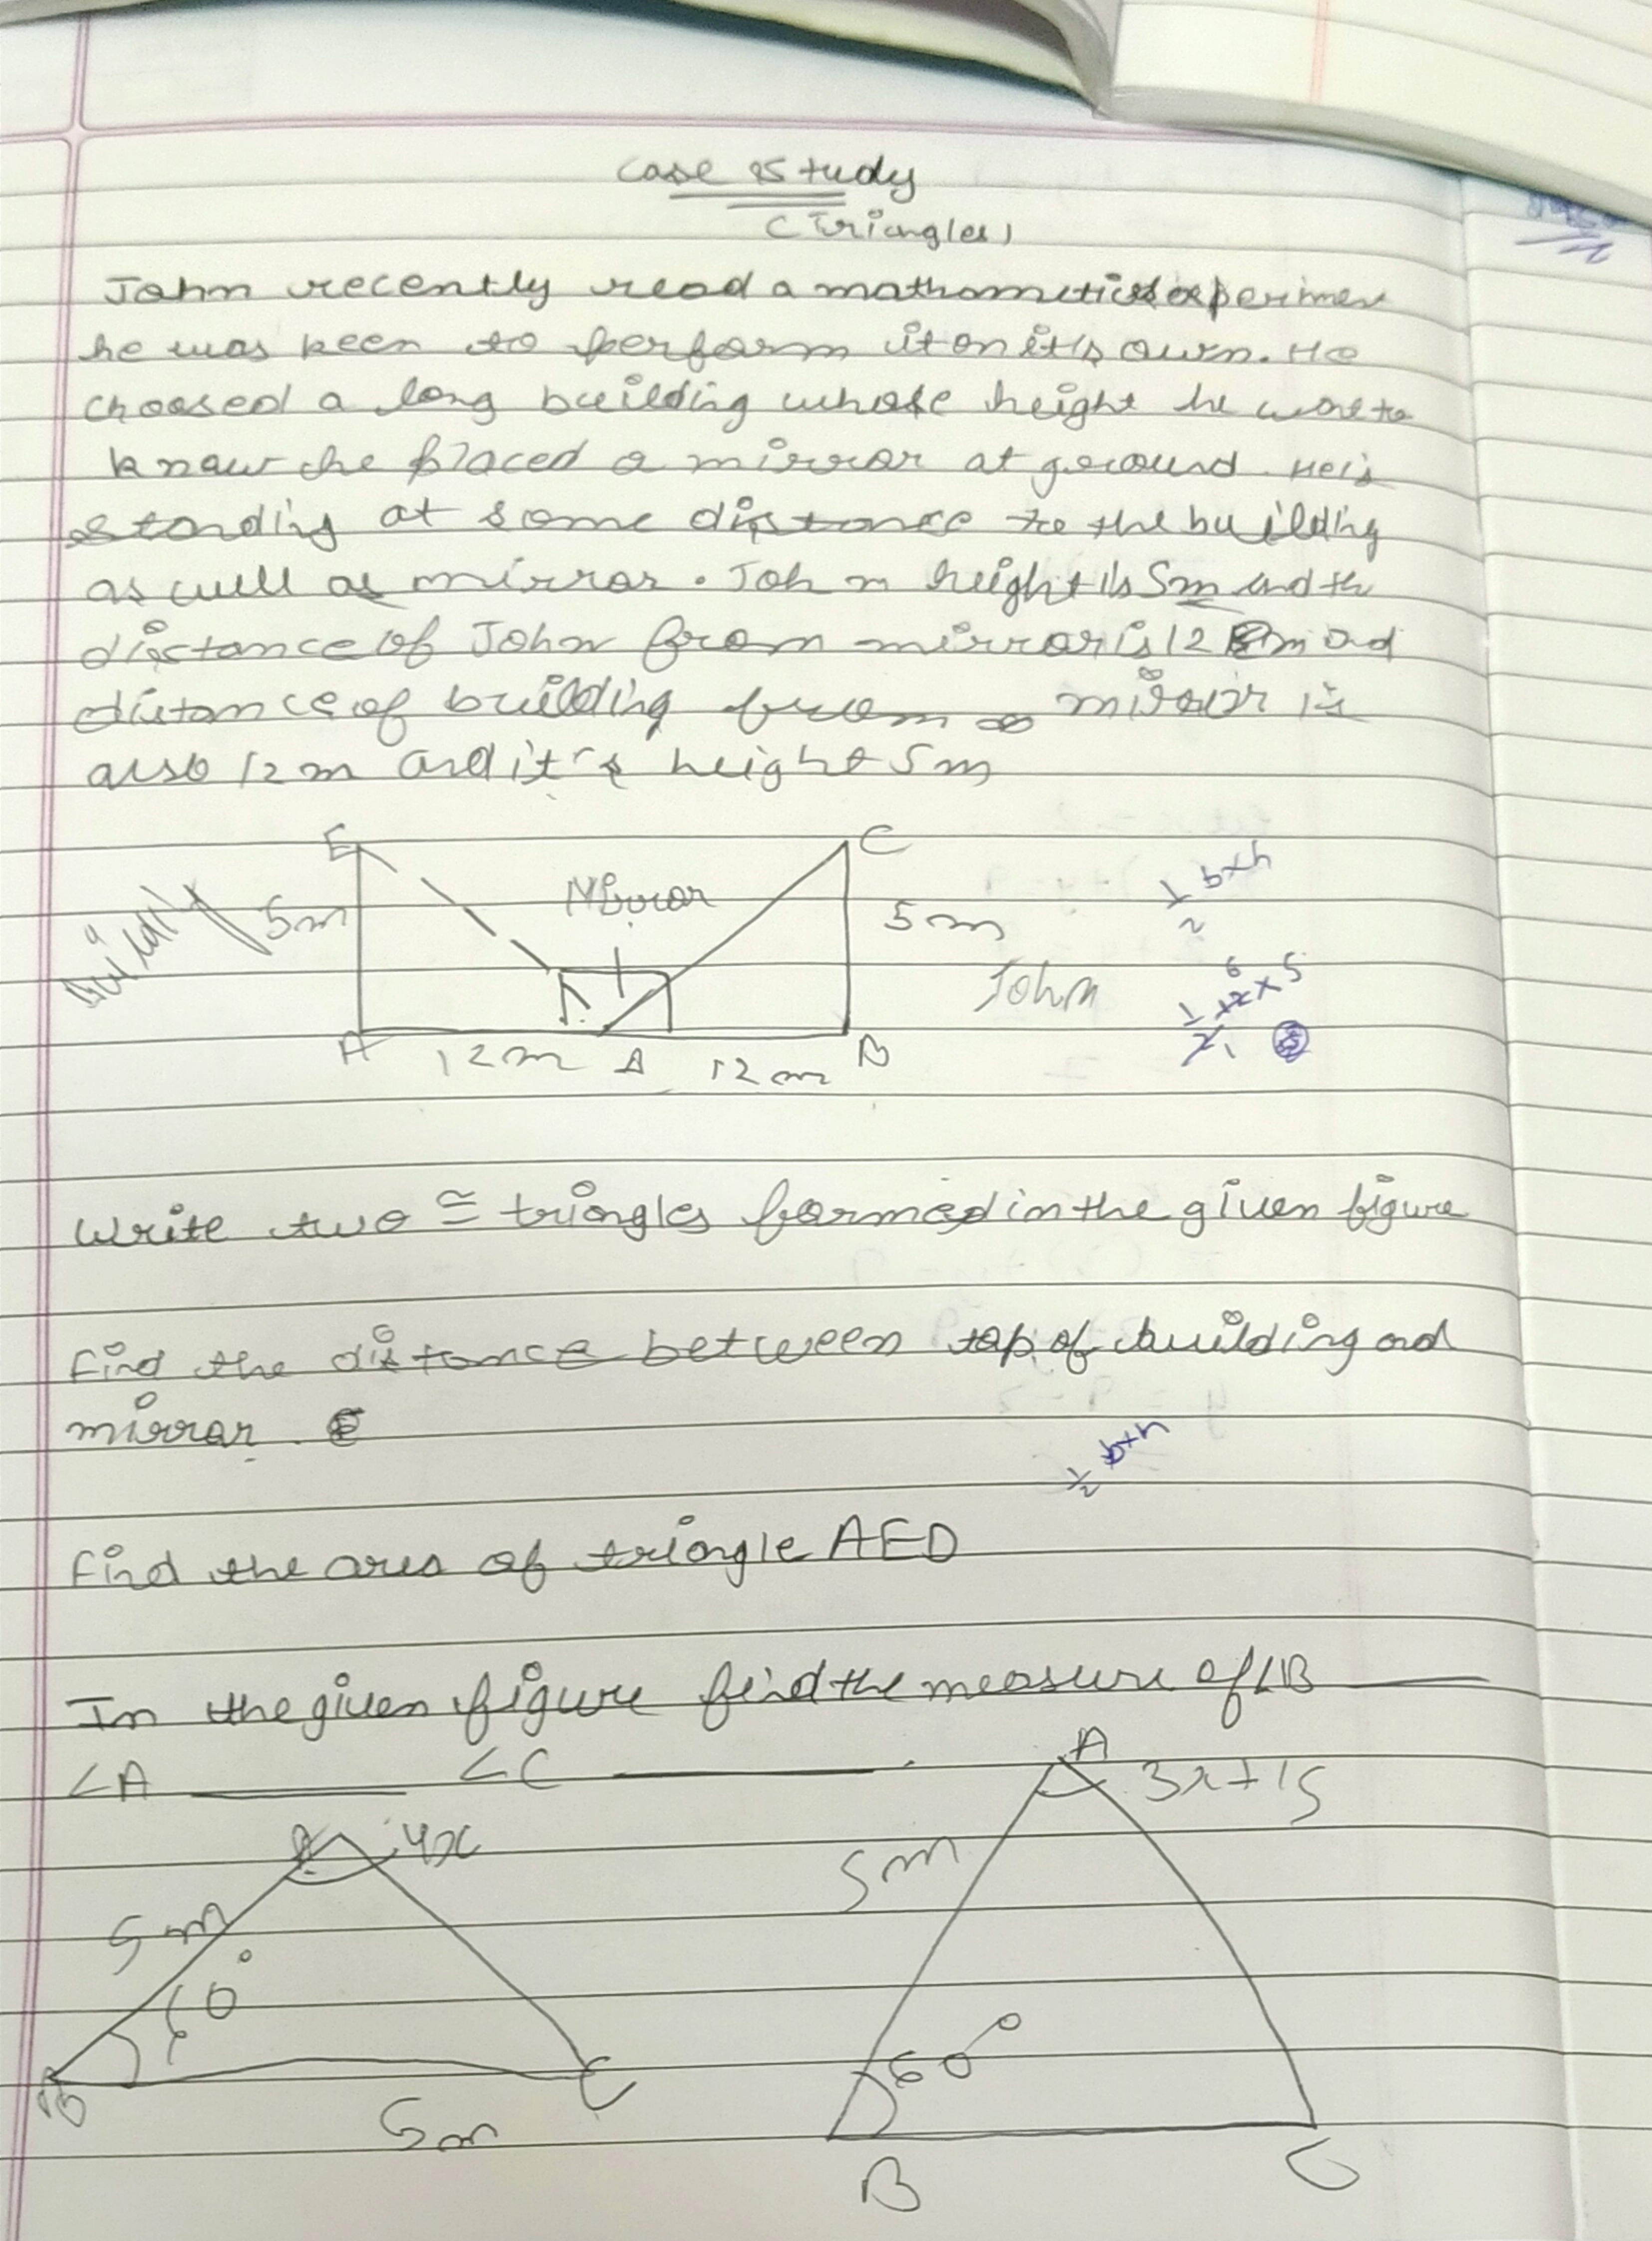 case study
(Triangles)
John recently read a mathametics experimen
he was keen to perform it on it's own. He
choosed a long building whose height he want to
know he placed a mirror at ground. He is
standing at some distance to the building
as well as mirror. John height is 5m and th
distance of John from mirror is 12 m and
distance of building from mirror is
also 12m and it's height 5m
E C
Mirror
5m 5m
1/2 b×h
John
1/2 12 6 × 5
A 12m 12m B
Write two ≅ triangles formed in the given figure
Find the distance between top of building and
mirror.
1/2 b×h
Find the area of triangle AED
In the given figure find the measure of ∠B ____
∠A ____ ∠C ____.
A 4x A 3x+15
5m 5m
60° 60°
B C
5m
B C